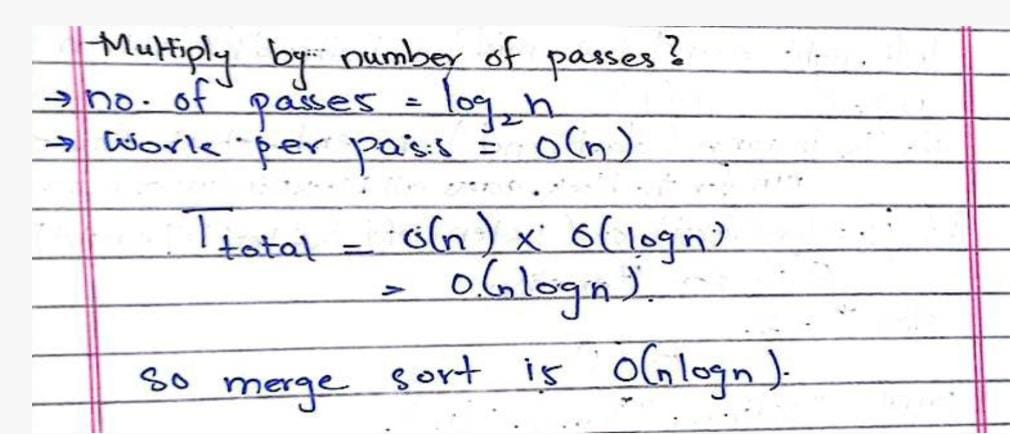 Multiply by number of passes?
→ no. of passes = log₂n
→ Work per pass = O(n)
T total = O(n) x O(logn)
= O(nlogn).
so merge sort is O(nlogn).